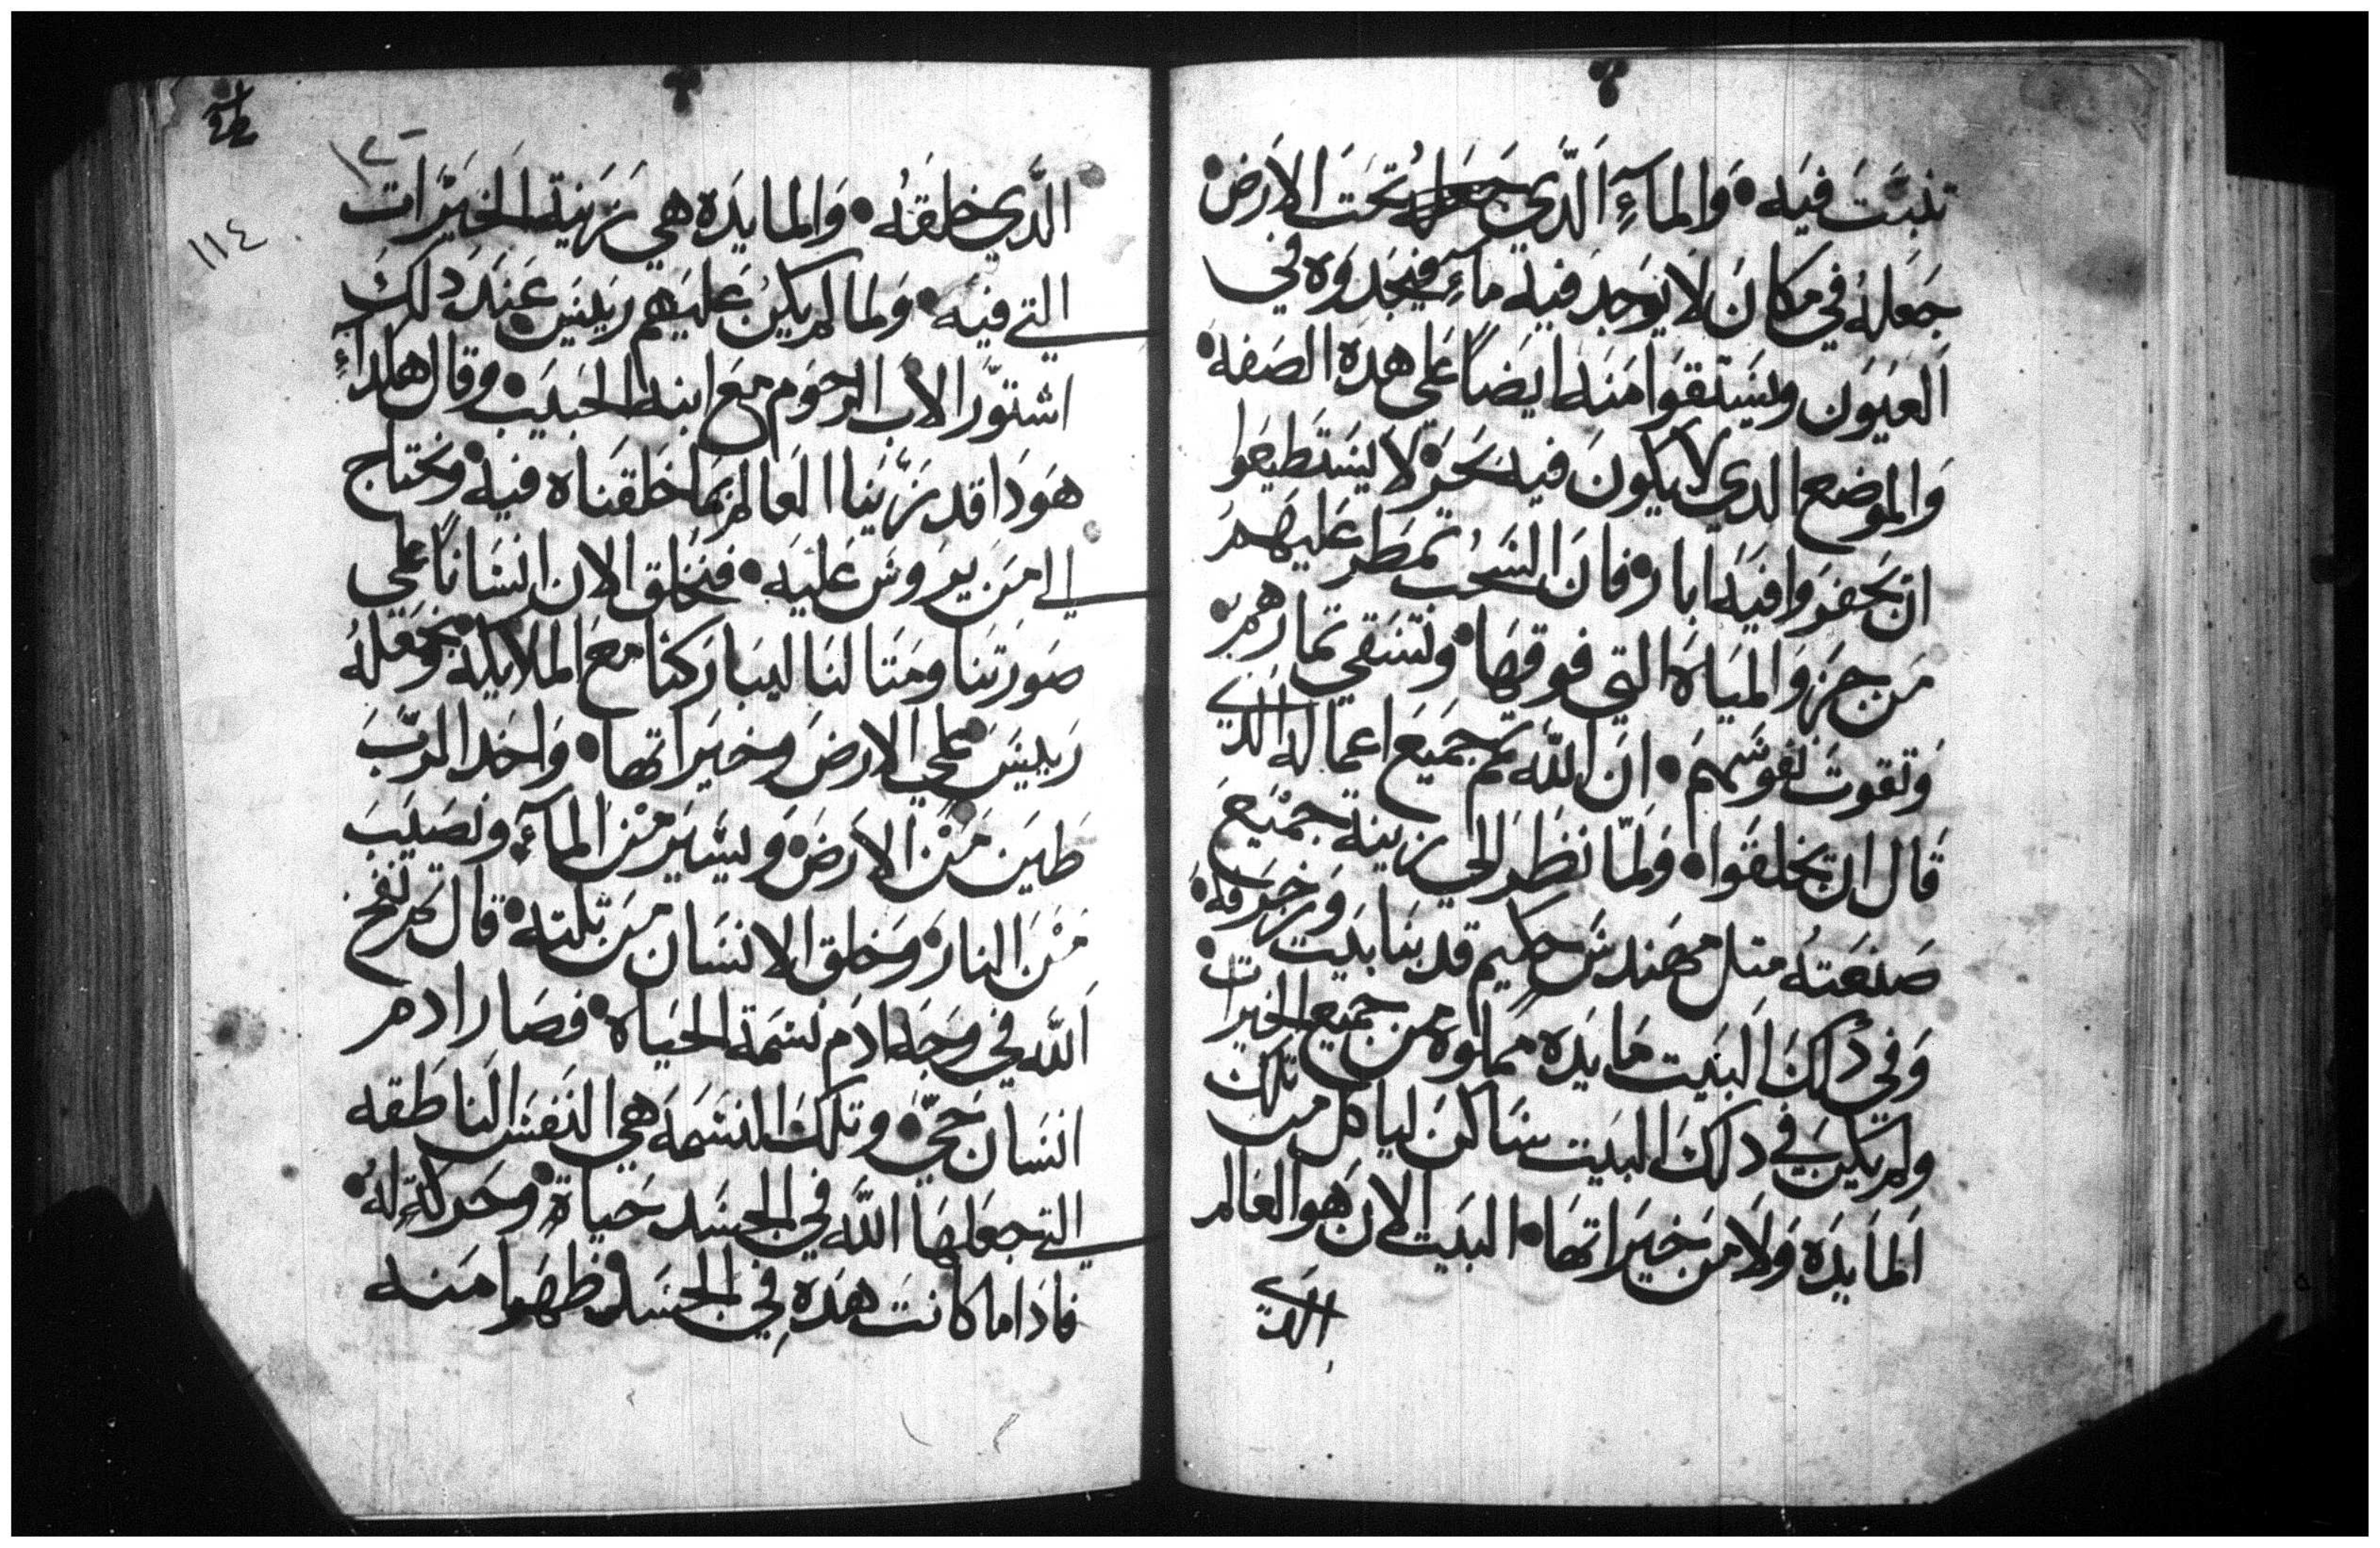 تنبت فيه • والمآء الدي جعله تحت الارض
جعله في مكان لا يوجد فيه مآء فيجدوه في
العيون وليستقوا منه ايضاً علي هده الصفه •
والموضع الدي لا يكون فيه بحر • لا يستطيعوا
ان يحفروا فيه ابار • فان السحب تمطر عليهم
من جز والمياه التي فوقها • وتسقي تمارهم •
وتقوت نفوسهم • ان الله تمم جميع اعماله الدي
قال ان تخلقوا • ولما نظر الي زينة جميع
صنعته متل مهندس حكيم قد بنا بيت وزخرفه •
وفي دلك البيت مايده مملوه من جميع الخيرات •
ولم يكن في دلك البيت ساكن لياكل من تلك
المايده ولا من خيراتها • البيت الان هو العالم
الدي
١١٤
الدي خلقه • والمايده هي زينة الخيرات
التي فيه • ولما لم يكن عليهم رييس عند دلك
اشتور الاب الرحوم مع ابنه الحبيب • وقال هكداء
هودا قد زينا العالم بما خلقناه فيه • ونحتاج
الي من يروس عليه • فنخلق الان انساناً علي
صورتنا ومتالنا ليباركنا مع الملايكه • ونجعله
رييس علي الارض وخيراتها • واخد الرب
طين من الارض • ويسير من المآء • ونصيب
من النار • وخلق الانسان من تلته • قال تم نفخ
الله في وجه ادم نسمة الحياه • فصار ادم
انسان حيّ • وتلك النسمه هي النفس الناطقه
التي جعلها الله في الجسد حياة • وحركة له •
فادا ما كانت هده في الجسد • ظهروا منه